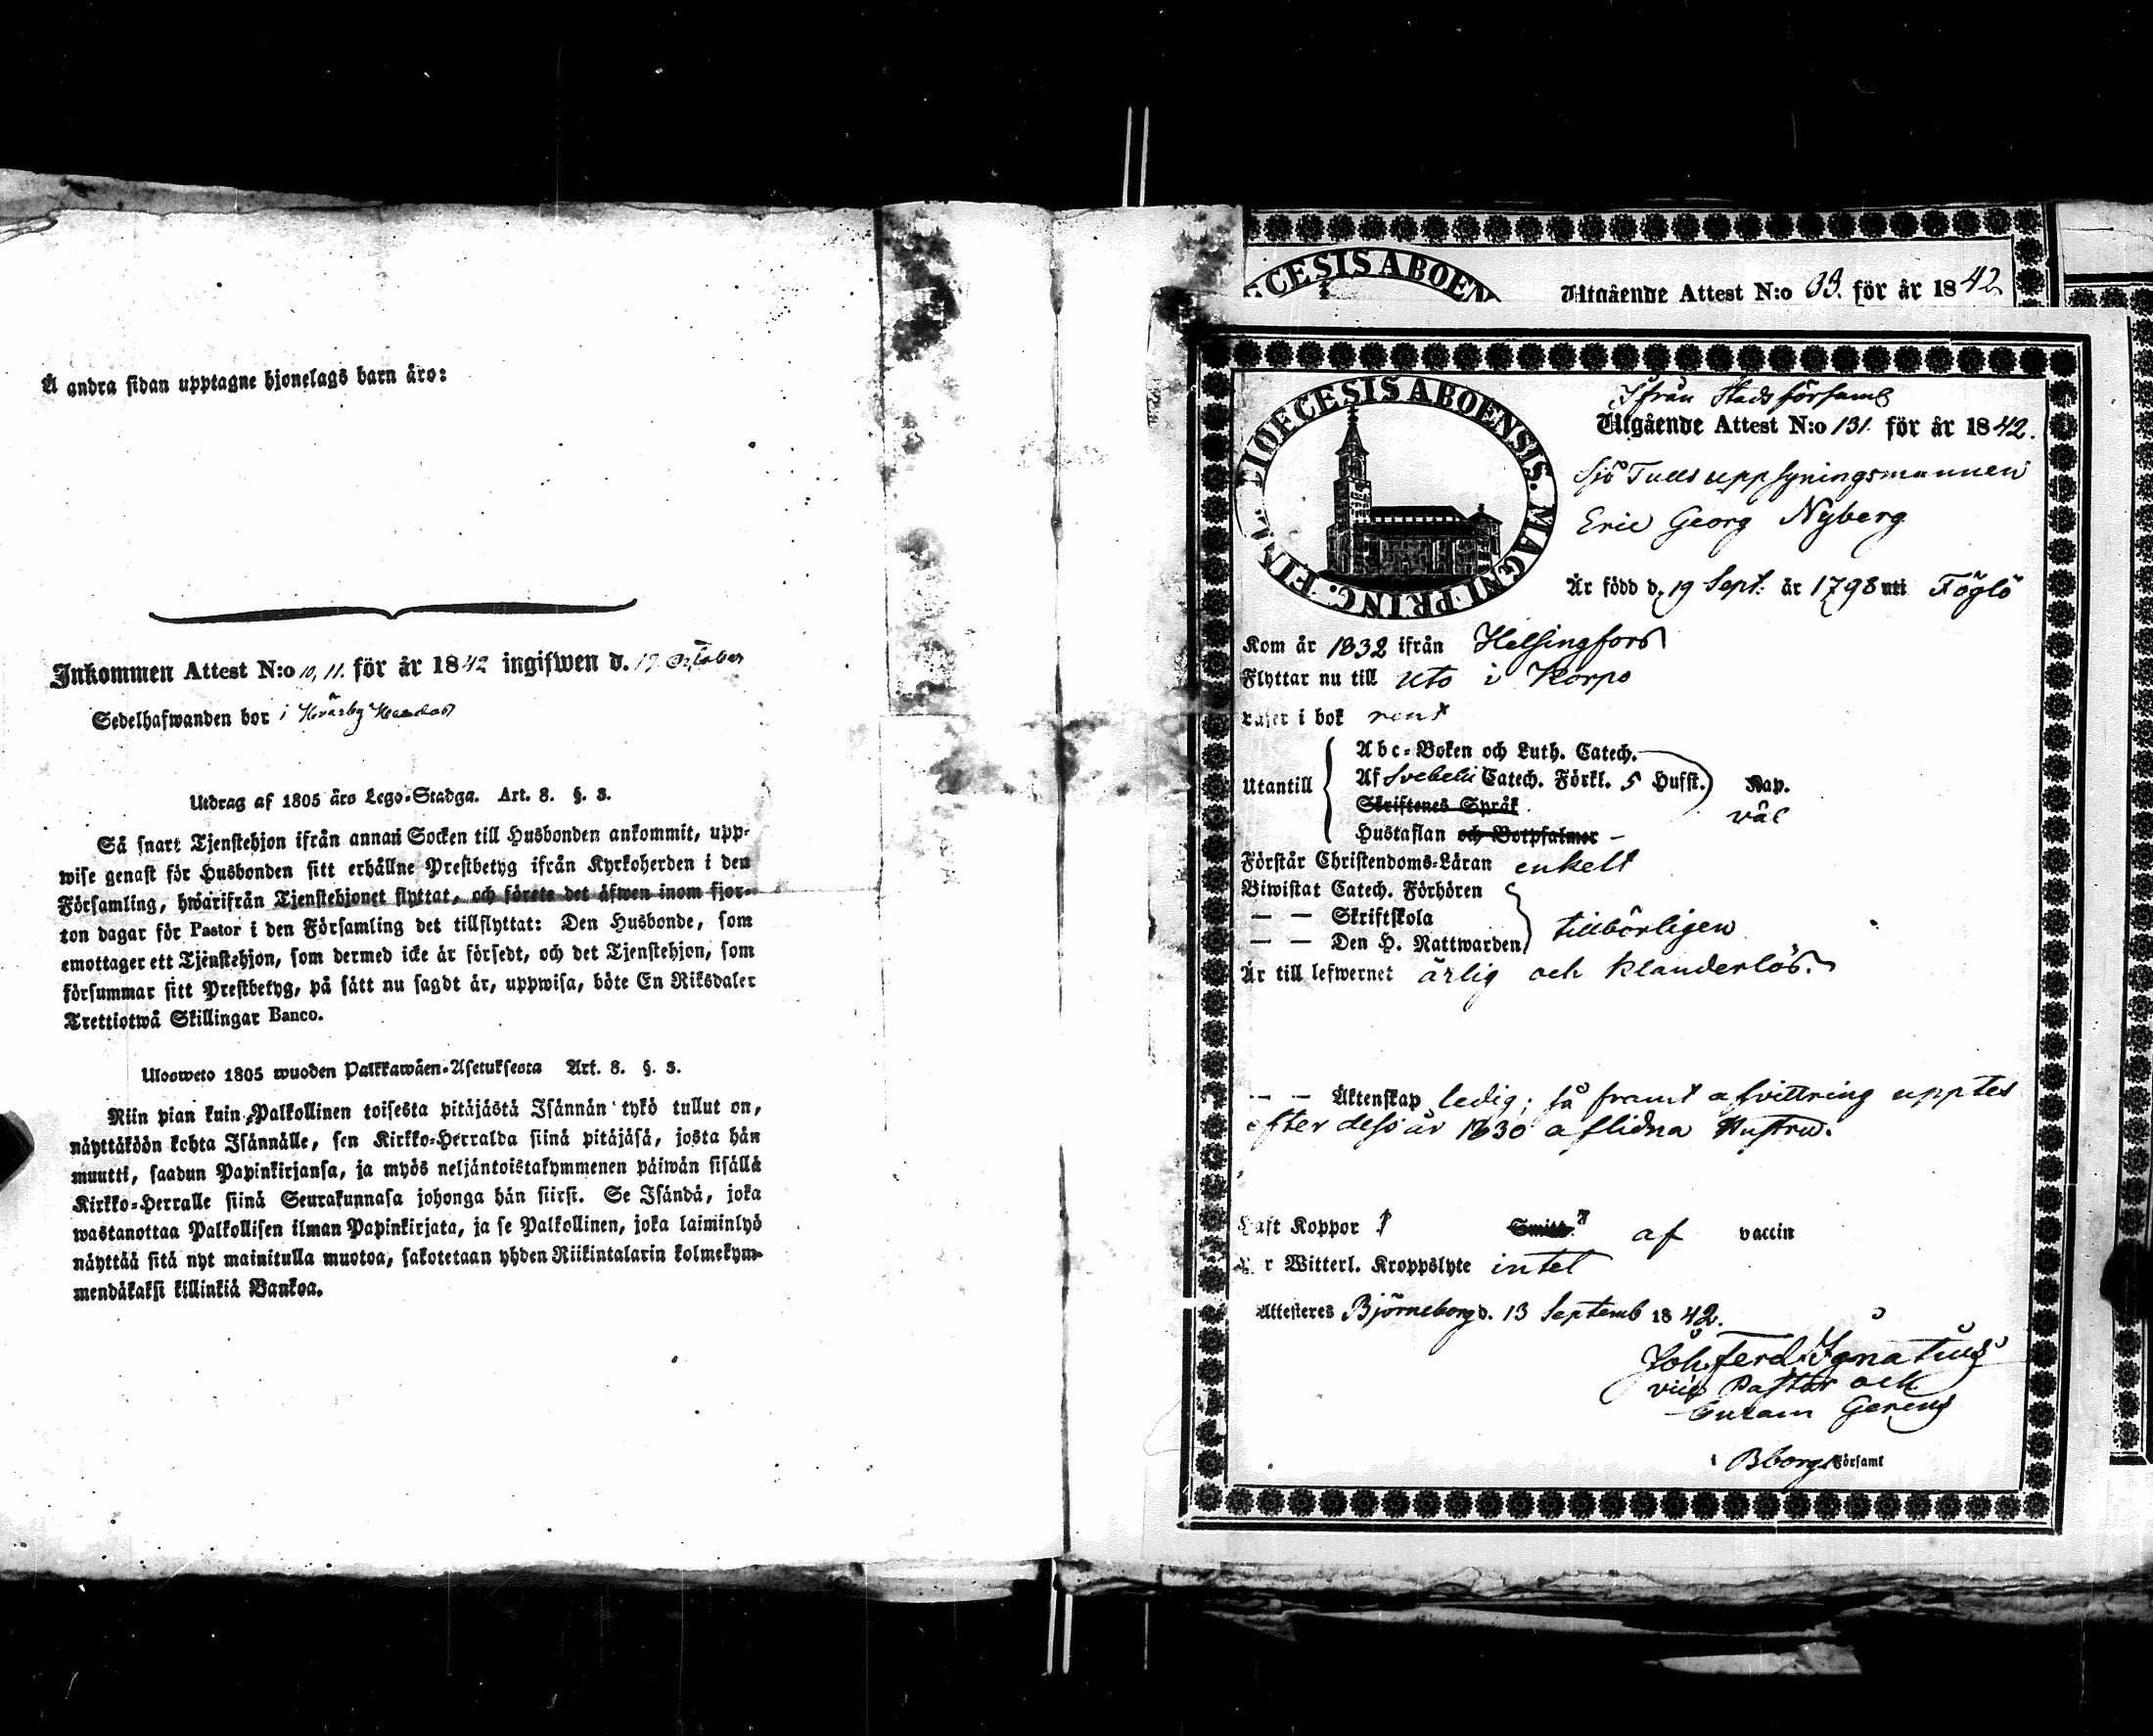 Å andra sidan upptagne hjonelags barn äro:
Inkommen Attest N:o 10, 11. för år 1842 ingifwen d. 17 October
Sedelhafwanden bor i
Utdrag af 1805 års Lego-Stadga. Art. 8. §. 3.
Så snart Tjenstehjon ifrån annan Socken till Husbonden ankommit, upp-
wise genast för Husbonden sitt erhållne Prestbetyg ifrån Kyrkoherden i den
Församling, hwarifrån Tjenstehjonet flyttat, och förete det äfwen inom fjor-
ton dagar för Pastor i den Församling det tillflyttat: Den Husbonde, som
emottager ett Tjenstehjon, som dermed icke är försedt, och det Tjenstehjon, som
försummar sitt Prestbetyg, på sätt nu sagdt är, uppwisa, böte En Riksdaler
Trettiotwå Skillingar Banco.
Ulosweto 1805 wuoden Palkkawäen-Asetuksesta Art. 8. §. 3.
Niin pian kuin Palkollinen toisesta pitäjästä Isännän tykö tullut on,
näyttäköön kohta Isännälle, sen Kirkko-Herralda siinä pitäjäsä, josta hän
muutti, saadun Papinkirjansa, ja myös neljäntoistakymmenen päiwän sisällä
Kirkko-Herralle siinä Seurakunnasa johonga hän siirsi. Se Isändä, joka
wastanottaa Palkollisen ilman Papinkirjata, ja se Palkollinen, joka laiminlyö
näyttää sitä nyt mainitulla muotoa, sakotetaan yhden Riikintalarin kolmekym-
mendäkaksi killinkiä Bankoa.
CESIS ABOEN
Utgående Attest N:o 33. för år 1842
DIOECESIS ABOENSIS. MAGNI PRINC. FINL.
Ifrån Stadsförsaml
Utgående Attest N:o 131 för år 1842.
Sjö Tullsuppsyningsmannen
Eric Georg Nyberg
Är född d. 19 Sept. år 1798 uti Föglö
Kom år 1832 ifrån Helsingfors
Flyttar nu till Utö i Korpo
läser i bok rent
Utantill
Abc-Boken och Luth. Catech.
Af Svebelii Catech. Förkl. 5 Hufst. Kap.
Skriftenes Språk
väl
Hustaflan och Botpsalmer
Förstår Christendoms-Läran enkelt
Biwistat Catech. Förhören
— — Skriftskola
tillbörligen
— — Den H. Nattwarden
Är till lefwernet ärlig och klanderlös.
— — Äktenskap ledig; så framt afvittring upptes
efter dess år 1830 aflidna Hustru.
Haft Koppor Smitt. af vaccin
r Witterl. Kroppslyte intet
Attesteres Björneborg d. 13 Septemb 1842.
Joh. Ferd. Ignatius
vice Pastor och
Curam Gerens
i Bborgs Församl